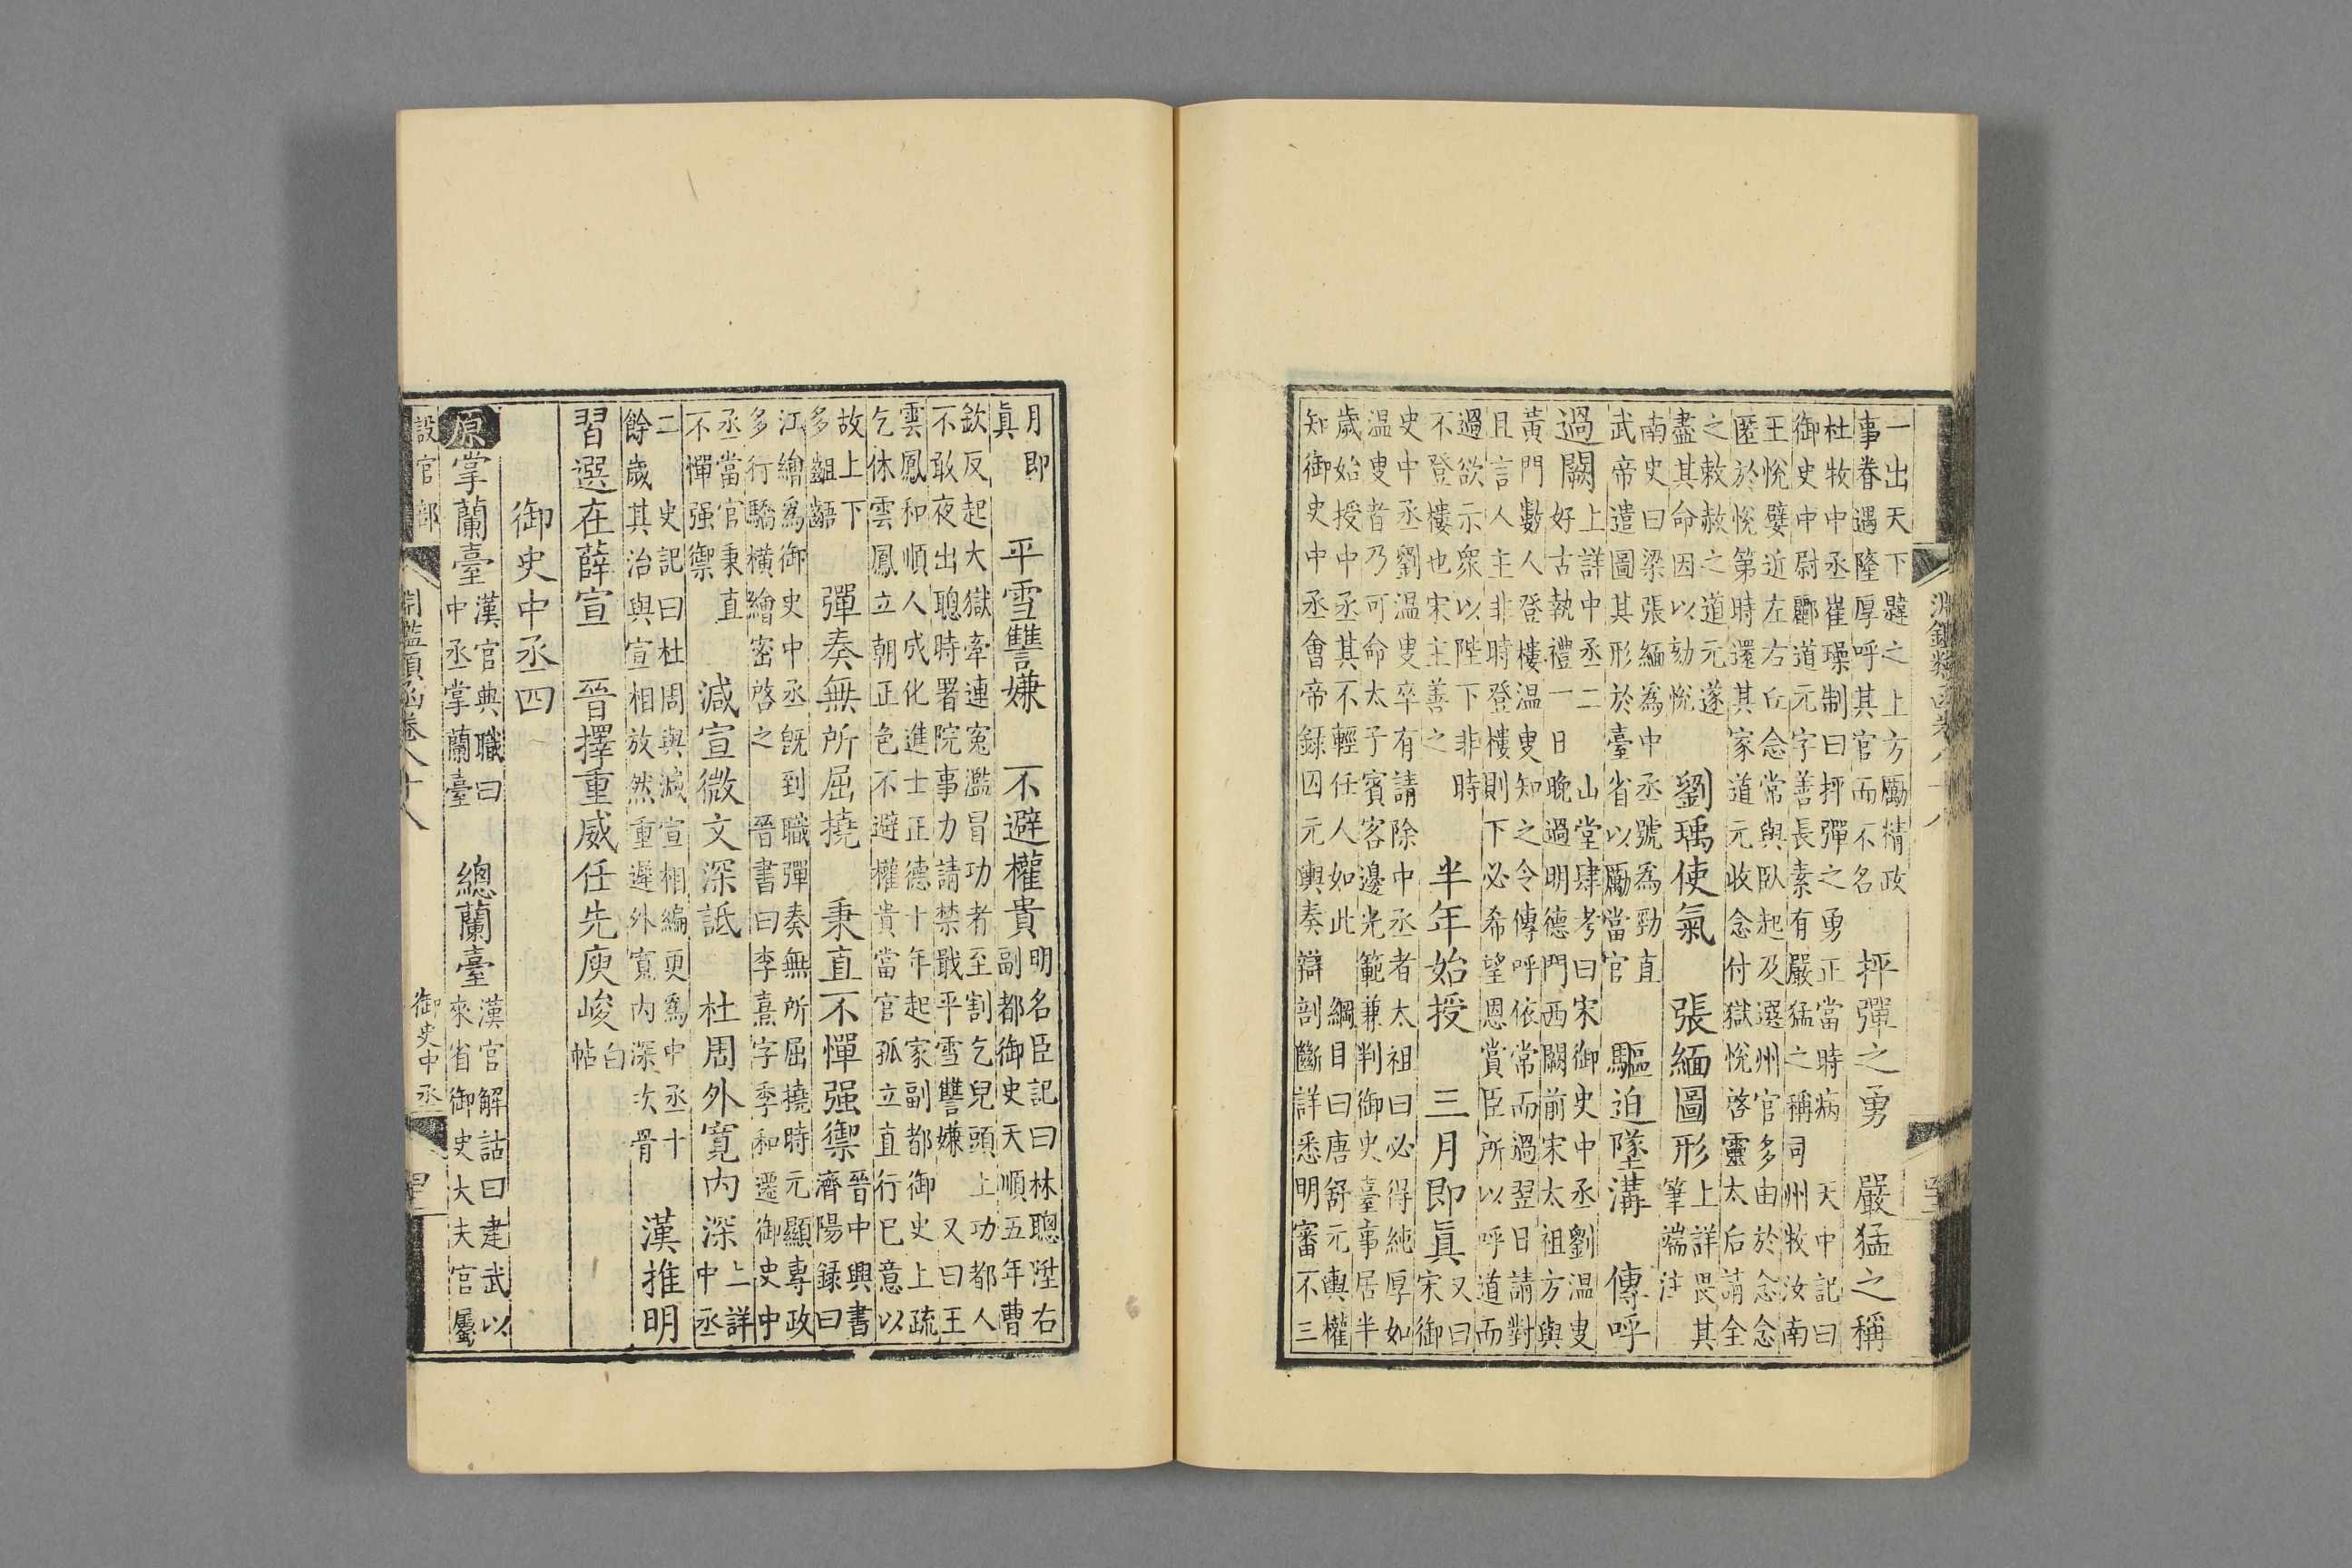 淵鑑類函卷八十八
一出天下踶之上方勵精政
事眷遇隆厚呼其官而不名
抨彈之勇　嚴猛之稱
杜牧中丞崔璪制曰抨彈之勇正當時病　天中記曰
御史中尉酈道元字善長素有嚴猛之稱司州牧汝南
王悅嬖近左右丘念常與臥起及選州官多由於念念
匿於悅第時還其家道元收念付獄悅啓靈太后請全
之敕赦之道元遂
盡其命因以劾悅
劉瑀使氣　張緬圖形
上詳畏其
筆端注
南史曰梁張緬為中丞號為勁直
武帝遣圖其形於臺省以勵當官
驅迫墜溝　傳呼
過闕
上詳中丞二　山堂肆考曰宋御史中丞劉温叟
好古執禮一日晚過明德門西闕前宋太祖方與
黃門數人登樓温叟知之令傳呼依常而過翌日請對
且言人主非時登樓則下必希望恩賞臣所以呼道而
過欲示衆以陛下非時
不登樓也宋主善之
半年始授　三月即眞
又曰
宋御
史中丞劉温叟卒有請除中丞者太祖曰必得純厚如
温叟者乃可命太子賓客邊光範兼判御史臺事居半
歲始授中丞其不輕任人如此　綱目曰唐舒元輿權
知御史中丞會帝録囚元輿奏辯剖斷詳悉明審不三
月即
眞
平雪讐嫌　不避權貴
明名臣記曰林聰陞右
副都御史天順五年曹
欽反起大獄牽連寃濫冒功者至割乞兒頭上功都人
不敢夜出聰時署院事力請禁戢平雪讐嫌　又曰王
雲鳳和順人成化進士正德十年起家副都御史上疏
乞休雲鳳立朝正色不避權貴當官孤立直行已意以
故上下
多齟齬
彈奏無所屈撓　秉直不憚强禦
晉中興書
濟陽録曰
江繪為御史中丞旣到職彈奏無所屈撓時元顯專政
多行驕橫繪密啓之　晉書曰李熹字季和遷御史中
丞當官秉直
不憚强禦
減宣微文深詆　杜周外寬内深
上詳
中丞
二　史記曰杜周與減宣相編更為中丞十
餘歲其治與宣相放然重遲外寬内深次骨
漢推明
習選在薛宣　晉擇重威任先庾峻
白
帖
御史中丞四
原掌蘭臺
漢官典職曰
中丞掌蘭臺
總蘭臺
漢官解詁曰建武以
來省御史大夫官屬
設官部　淵鑑類函卷八十八　御史中丞